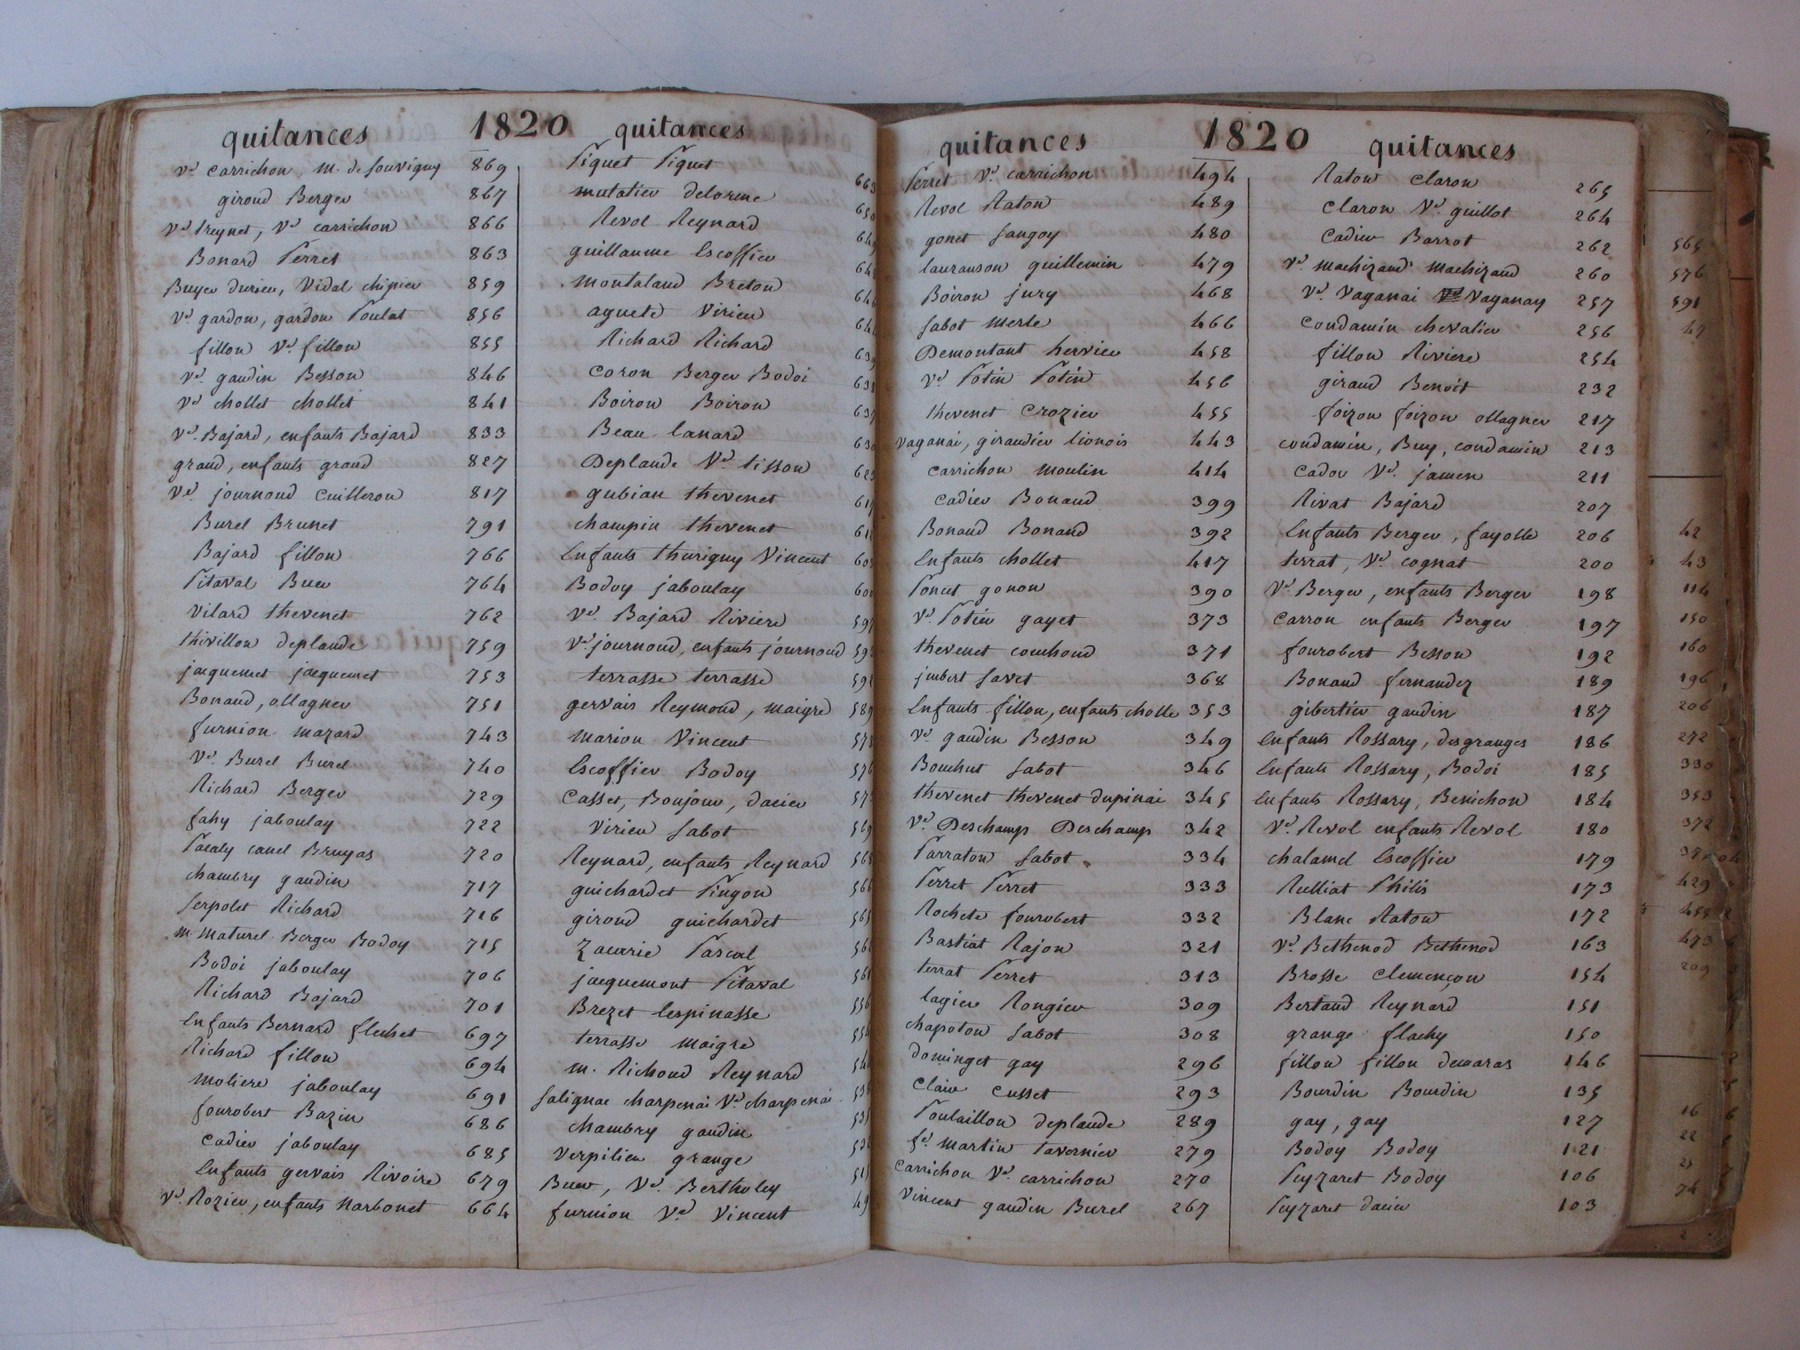 quitances 1820 quitances
Vᵉ carrichon, m. de souvigny 869
giroud Berger 867
Vᵉ treynet, Vᵉ carrichon 866
Bonard Perret 863
Buyer durieu, Vidal chipier 859
Vᵉ gardon, gardon Poulat 856
fillon Vᵉ fillon 855
Vᵉ gaudin Besson 846
Vᵉ chollet chollet 841
Vᵉ Bajard, enfants Bajard 833
graud, enfants graud 827
Vᵉ journoud Cuilleron 817
Burel Brunet 791
Bajard fillon 766
Pitaval Buer 764
Vilard thevenet 762
thivillon deplaude 759
jacquemet jacquemet 753
Bonaud, ollagner 751
furnion mazard 743
Vᵉ Burel Burel 740
Richard Berger 729
fahy jaboulay 722
Pacaly canel Bruyas 720
chambry gaudin 717
serpolet Richard 716
m. maturel Berger Bodoy 715
Bodoi jaboulay 706
Richard Bajard 701
Enfants Bernard flechet 697
Richard fillon 694
moliere jaboulay 691
fourobert Bazin 686
Cadier jaboulay 685
Enfants gervais Rivoire 679
Vᵉ Rozier, enfants Narbonet 664
Piquet Piquet
mutatier delorme
Revol Reynard
guillaume Escoffier
montaland Breton
aguete Virieu
Richard Richard
coron Berger Bodoi
Boiron Boiron
Beau lanard
Deplaude Vᵉ tisson
gubian thevenet
champin thevenet
Enfants thurigny Vincent
Bodoy jaboulay
Vᵉ Bajard Riviere
Vᵉ journoud, enfants journoud
terrasse terrasse
gervais Reymond, maigre
marion Vincent
Escoffier Bodoy
Casset, Boujour, dacier
Virieu sabot
Reynard, enfants Reynard
guichardet Pingon
giroud guichardet
Zacarie Pascal
jacquemont Pitaval
Brezet lespinasse
terrasse maigre
m. Richoud Reynard
salignac charpenai Vᵉ charpenai
chambry gaudin
Verpilieu grange
Buer, Vᵉ Bertholey
furnion Vᵉ Vincent
quitances 1820 quitances
Perret Vᵉ carrichon 494
Revol Raton 489
gonet saugoy 480
lauranson guillemin 479
Boiron jury 468
sabot merle 466
Demontant hervier 458
Vᵉ Potin Potin 456
thevenet Crozier 455
vaganai, giraudier lionois 443
carrichon moulin 414
cadier Bonaud 399
Bonaud Bonaud 392
Enfants chollet 417
Poncet gonon 390
Vᵉ Potier gayet 373
thevenet couchoud 371
jmbert savet 368
Enfants fillon, enfants cholle 353
Vᵉ gaudin Besson 349
Bouchut sabot 346
thevenet thevenet dupinai 345
Vᵉ Deschamp Deschamp 342
Parraton sabot 334
Perret Perret 333
Rochete fourobert 332
Bastiat Rajon 321
terrat Perret 313
lagier Rongier 309
chapoton sabot 308
dominget gay 296
Clair cusset 293
Poulaillon deplaude 289
fᵉ martin tavernier 279
carrichon Vᵉ carrichon 270
Vincent gaudin Burel 267
Raton Claron 265
Claron Vᵉ guillot 264
Cadier Barrot 262
Vᵉ machizaud machizaud 260
Vᵉ Vaganai Vaganay 257
condamin chevalier 256
fillon Riviere 254
giraud Benoit 232
foizon foizon ollagner 217
condamin, Buy, condamin 213
Cador Vᵉ jamen 211
Rivat Bajard 207
Enfants Berger, fayolle 206
terrat, Vᵉ cognat 200
Vᵉ Berger, enfants Berger 198
Carron enfants Berger 197
fourobert Besson 192
Bonaud fernandez 189
gibertier gaudin 187
Enfants Rossary, desgranges 186
Enfants Rossary, Bodoi 185
Enfants Rossary, Benichon 184
Vᵉ Revol enfants Revol 180
chalamel Escoffier 179
Rulliat Philis 173
Blanc Raton 172
Vᵉ Bethenod Bethenod 163
Brosse Clemençon 154
Bertaud Reynard 151
grange flachy 150
fillon fillon demaras 146
Bourdin Bourdin 135
gay, gay 127
Bodoy Bodoy 121
Peyzaret Bodoy 106
Peyzaret dacier 103
565
576
591
42
43
114
150
160
196
206
272
330
353
372
429
455
473
209
16
22
74